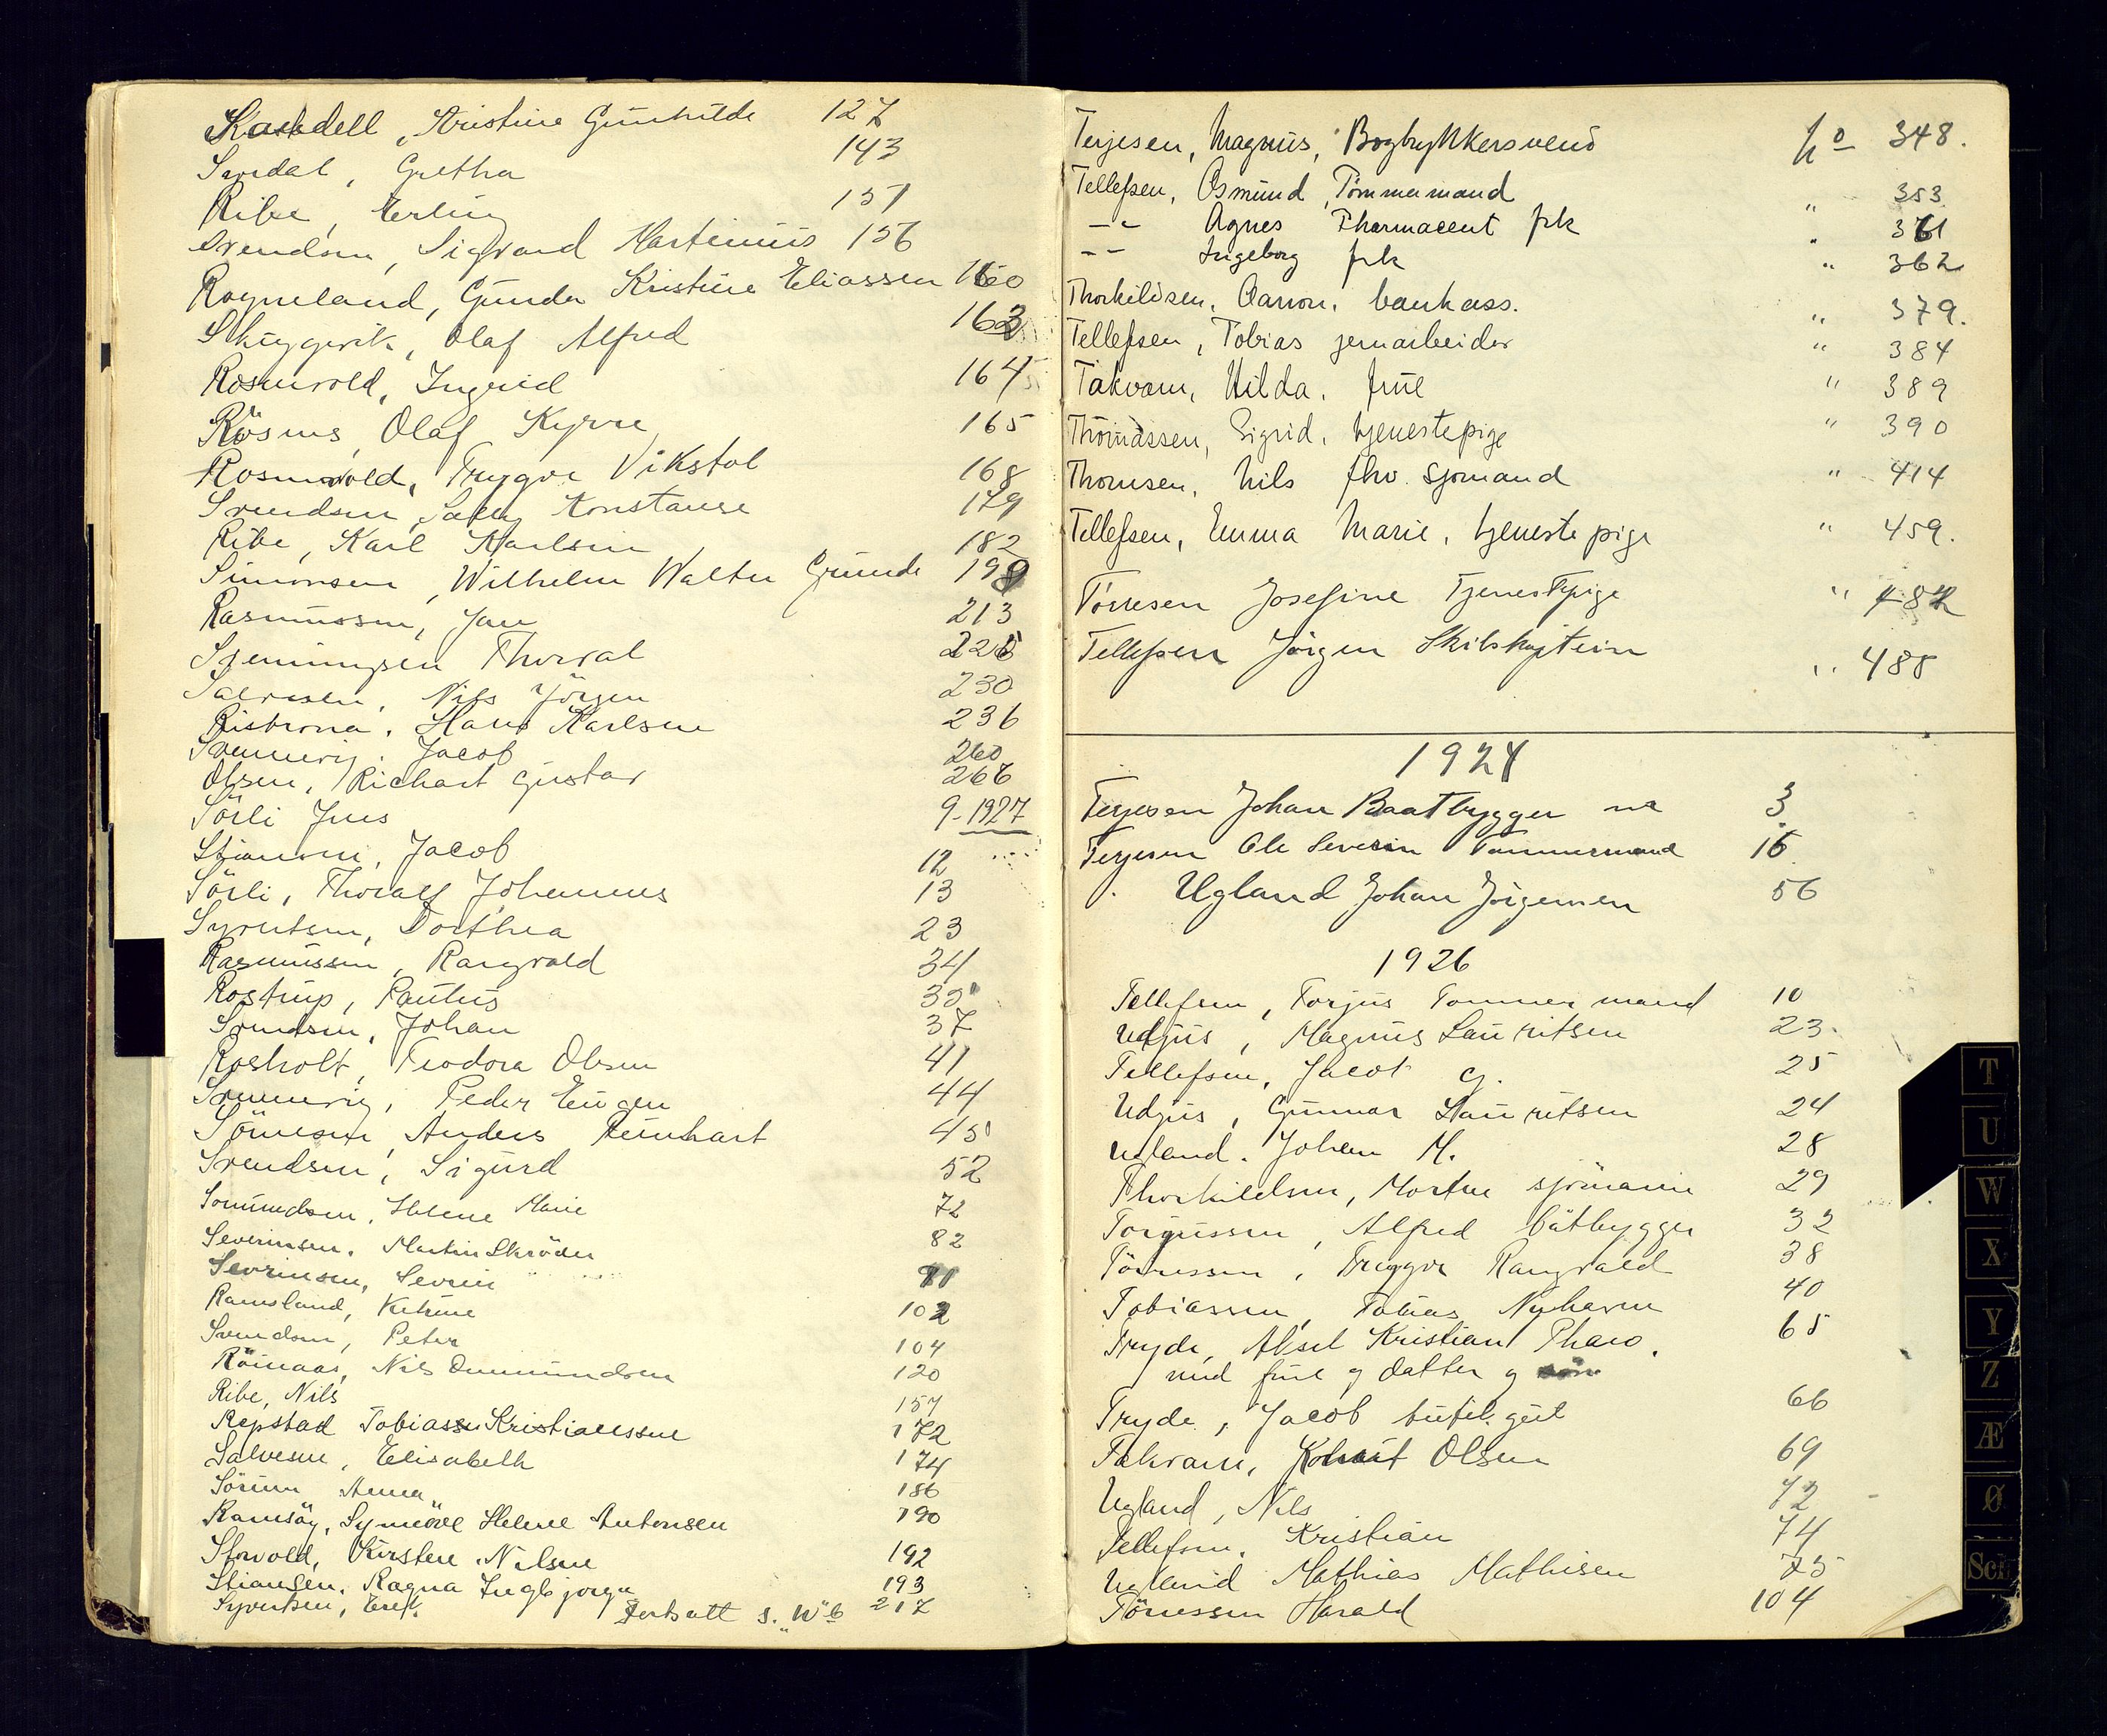 Kristine Gunhilde 127
Syrdal, Grethe 143
Ribe, Erling 151
Svendsen, Sigvard Martinius 156
Rogneland, Gunda Kristine Eliassen 160
Skuggevik, Olaf Alfred 163
Rosenvold, Ingrid 164
Olaf Kyrre 165
Rosenvold, Trygve Vikstøl 168
Svendsen, Konstanse 179
Ribe, Karl Karlsen 182
Simonsen, Wilhelm Walter 199
Rasmussen, Jan 213
Thorval
Salvesen, Nils Jörgen 230
Hans Karlsen 236
Jacob 260
Olsen, Richart Gustav 266
Sörli Jens 9-1927
Jacob 12
Sörli, Thoralf Johannes 13
Syvertsen, Dorthea 23
Rasmussen, Rangvald 34
Rostrup, Paulus 35
Svendsen, Johan 37
Rosholt, Teodora Olsen 41
Peder Eugen 44
Anders Reinhart 45
Svendsen, Sigurd 52
Helene Marie 72
Severinsen, Martin Skröder 82
Sevrinsen, Sevrin
Ramsland, 102
Svendsen, Peter 104
Nils 120
Ribe, Nils 157
Repstad Tobiasse Kristianssen 172
Salvesen, Elisabeth 174
Anna 186
Ramsöy, Helene Antonsen 190
Kirsten Nilsen 192
Stiansen, Ragna Ingbjorg 193
Syvertsen, 217
Fortsatt s. "W" 6
Terjesen, Magnus, Bogtrykkersvend no 348.
Tellefsen, Osmund, Tömmermand " 353
-"- Agnes Pharmaceut frk " 361
-"- Ingeborg frk " 362
Thorkildsen, Aanon, bankass. " 379.
Tellefsen, Tobias jernarbeider " 384
Takvam, Hilda, frue " 389
Thomassen, Sigrid, tjenestepige " 390
Thomsen, Nils fhv. sjömand " 414
Tellefsen, Emma Marie, tjenestepige " 459.
Tönnesen Josefine Tjenestepige " 482
Tellefsen Jörgen Skibskaptein " 488
1924
Terjesen Johan Baatbygger no 3
Terjesen Ole Severin Tømmermand 16
Ugland Johan Jörgensen 56
1926
Tellefsen, Torjus Tømmermand 10
Udjus, Magnus Lauritsen 23.
Tellefsen, Jacob G. 25
Udjus, Gunnar Lauritsen 24
Ugland, Johan M. 28
Thorkildsen, Morten sjömann 29
Torjussen, Alfred båtbygger 32
Tönnessen, Trygve Rangvald 38
Tobiassen, Tobias Nyhavn 40
Tryde, Aksel Kristian Pharo. 65
med frue og datter og sön
Tryde, Jacob 66
Takvam, Olsen 69
Ugland, Nils 72
Tellefsen, Kristian 74
Ugland Mathias Mathisen 75
Tönnessen Harald 104
T
U
W
X
Y
Z
Æ
Ø
Sch